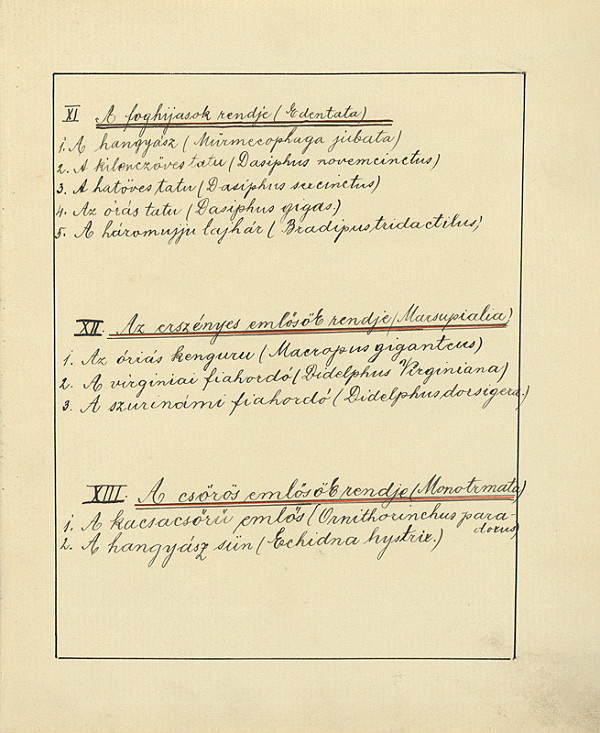 XI A foghijasok rendje (Edentata)
1. A hangyász (Mürmecophaga jubata)
2. A kilenczöves tatu (Dasiphus novemcinctus)
3. A hatöves tatu (Dasiphus sexcinctus)
4. Az órás tatu (Dasiphus gigas.)
5. A háromujju lajhár (Bradipus tridactilus)
XII. Az erszényes emlősök rendje (Marsupialia)
1. Az óriás kenguru (Macropus giganteus)
2. A virginiai fiahordó (Didelphus Virginiana)
3. A szurinámi fiahordó (Didelphus dorsigera.)
XIII. A csőrös emlősök rendje (Monotrmata)
1. A kacsacsőrű emlős (Ornithorinchus para-
doxus)
2. A hangyász sün (Echidna hystrix.)